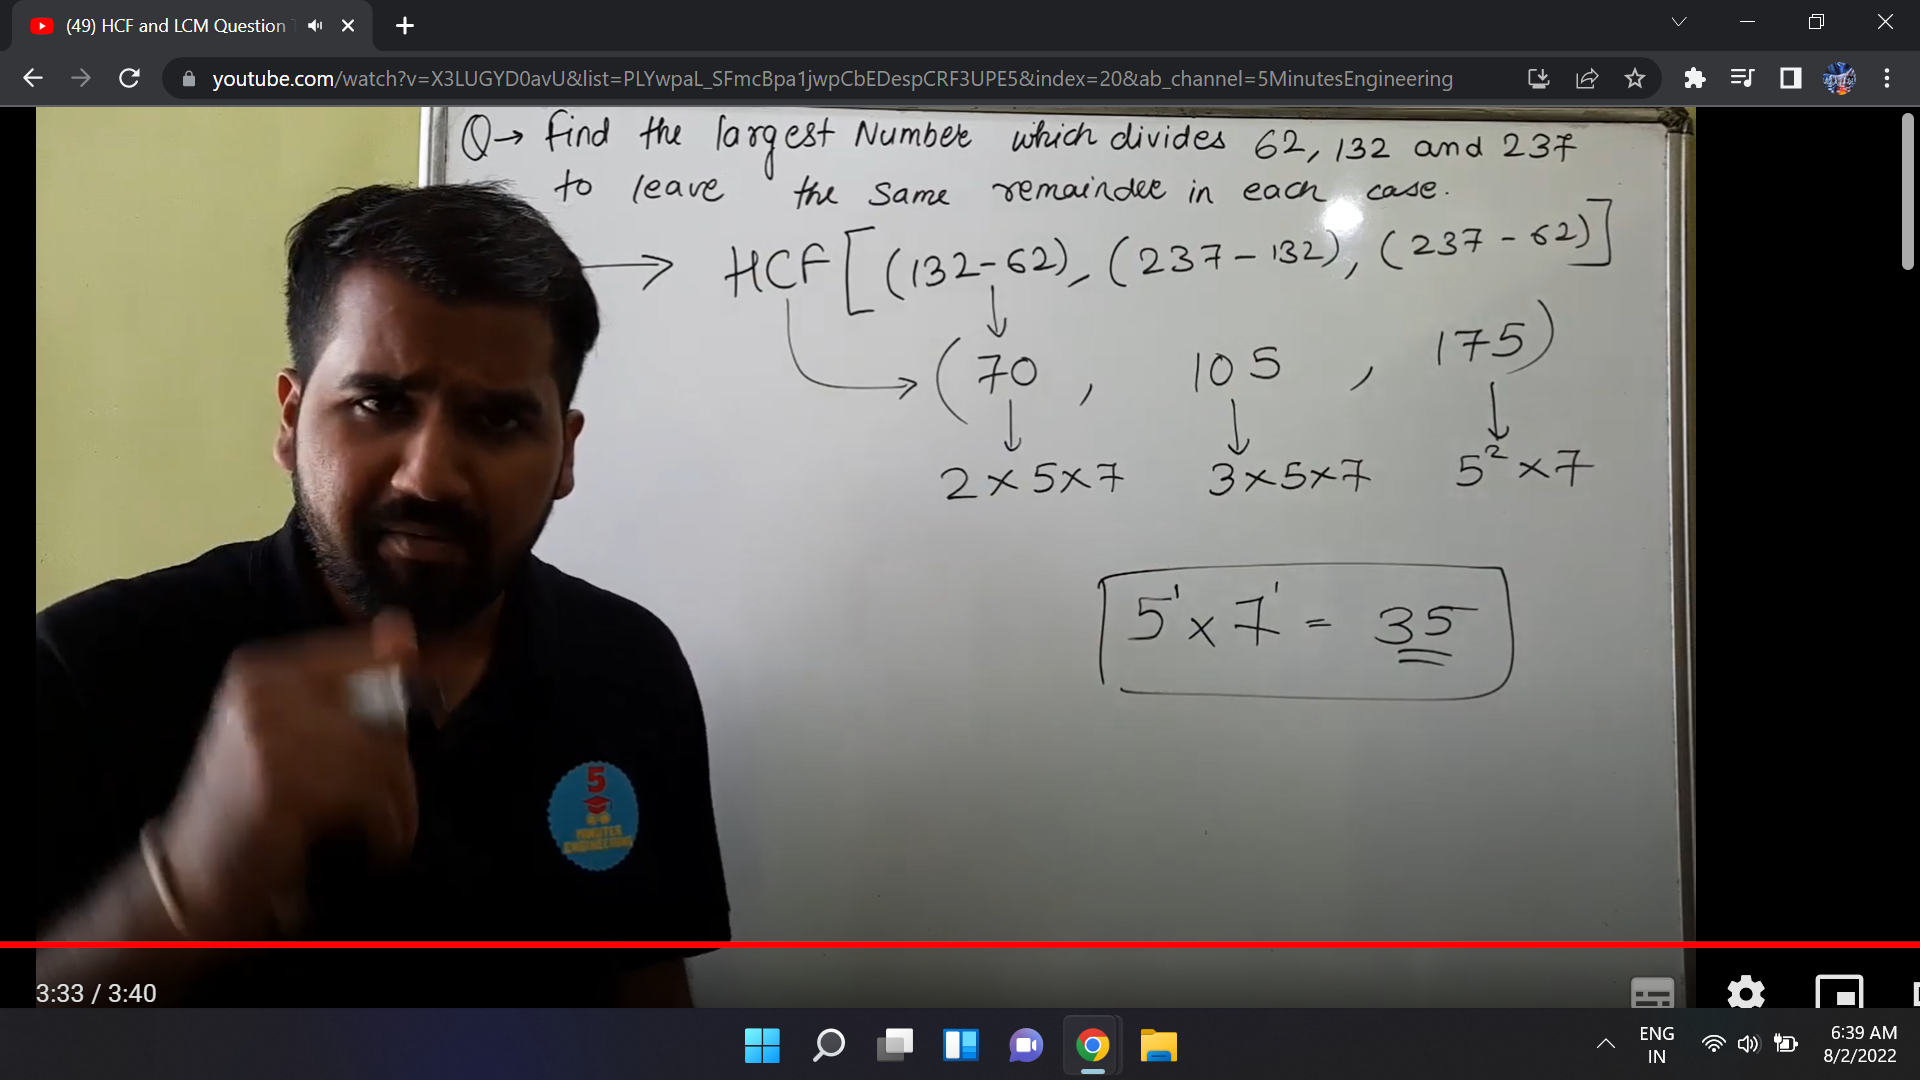 (49) HCF and LCM Question
youtube.com/watch?v=X3LUGYD0avU&list=PLYwpaL_SFmcBpa1jwpCbEDespCRF3UPE5&index=20&ab_channel=5MinutesEngineering
Q→ find the largest Number which divides 62, 132 and 237
to leave the same remainder in each case.
→ HCF [(132-62), (237-132), (237-62)]
(70, 105, 175)
2×5×7 3×5×7 5²×7
5¹×7¹ = 35
5
MINUTES
ENGINEERING
3:33 / 3:40
ENG
IN
6:39 AM
8/2/2022